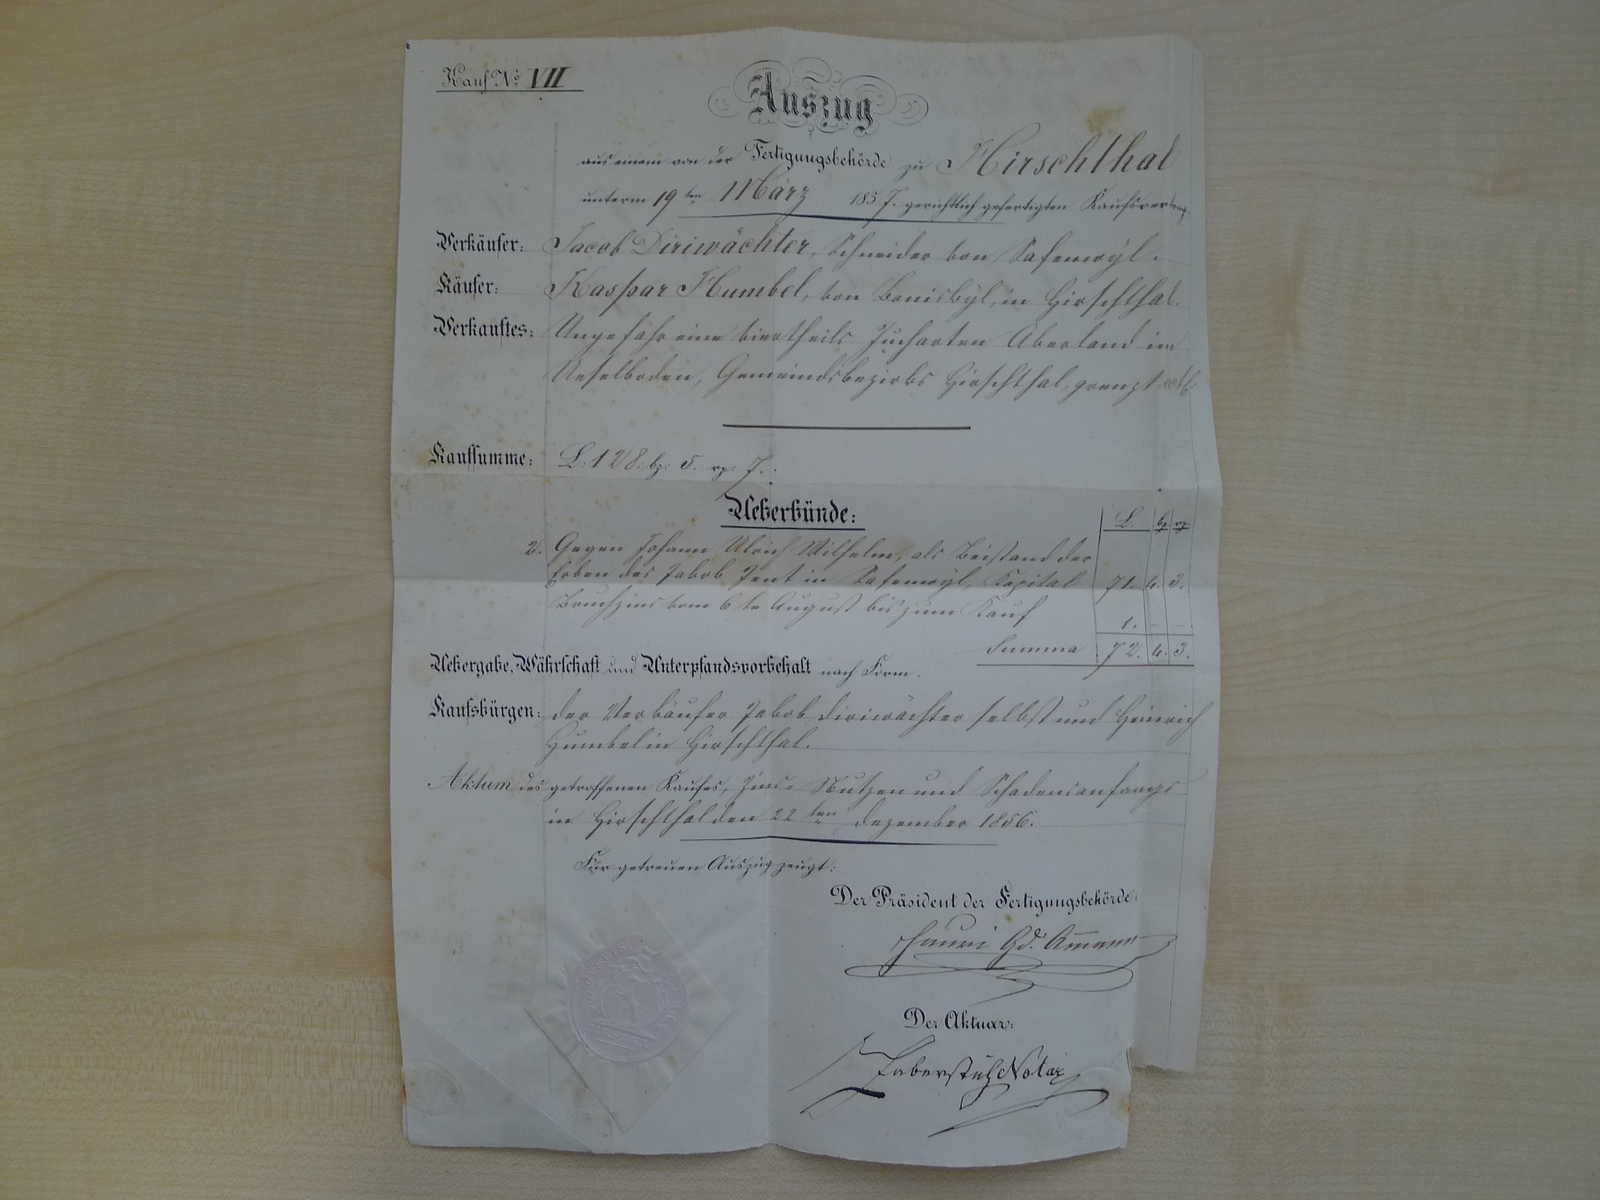 Kauf No. VII
Auszug
aus einem von der Fertigungsbehörde zu Hirschthal
unterm 19ten März 1857. gerichtlich gefertigten Kaufsvertrag.
Verkäufer: Jacob Diriwächter, Schneider von Safenwyl.
Käufer: Kaspar Humbel, von Boniswyl, in Hirschthal.
Verkauftes: Ungefähr eine viertheils Jucharten Akerland im
Neselboden, Gemeindsbezirks Hirschthal, grenzt
Kaufsumme: L. 128. bz. 5. rp. 7.
Ueberbünde:
L. bz rp
2. Gegen Johann Ulrich Wilhelm, als Beistand der
Erben des Jakob Jent in Safenwyl, Kapital 71. 4. 3.
Bruchzins vom 6ten August bis zum Kauf 1. - -
Summa 72. 4. 3.
Uebergabe, Währschaft und Unterpfandsvorbehalt nach Form.
Kaufsbürgen: der Verkäufer Jakob Diriwächter selbst und Heinrich
Humbel in Hirschthal.
Aktum des getroffenen Kaufes, Zins- Nutzen und Schadensanfangs
in Hirschthal den 22ten Dezember 1856.
Für getreuen Auszug zeugt:
Der Präsident der Fertigungsbehörde:
Hauri Gd. Ammann
Der Aktuar:
Haberstich Notar